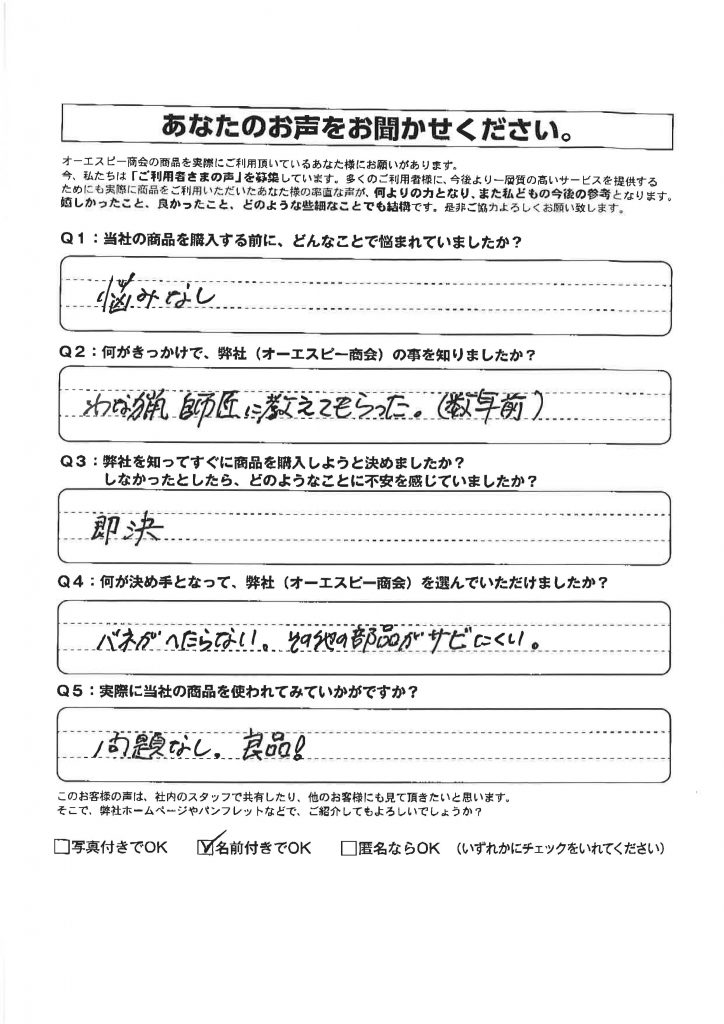 あなたのお声をお聞かせください。
オーエスピー商会の商品を実際にご利用頂いているあなた様にお願いがあります。
今、私たちは「ご利用者さまの声」を募集しています。多くのご利用者様に、今後より一層質の高いサービスを提供する
ためにも実際に商品をご利用いただいたあなた様の率直な声が、何よりの力となり、また私どもの今後の参考となります。
嬉しかったこと、良かったこと、どのような些細なことでも結構です。是非ご協力よろしくお願い致します。
Q1：当社の商品を購入する前に、どんなことで悩まれていましたか？
悩みなし
Q2：何がきっかけで、弊社（オーエスピー商会）の事を知りましたか？
わな猟師匠に教えてもらった。(数年前)
Q3：弊社を知ってすぐに商品を購入しようと決めましたか？
しなかったとしたら、どのようなことに不安を感じていましたか？
即決
Q4：何が決め手となって、弊社（オーエスピー商会）を選んでいただけましたか？
バネがへたらない。その他の部品がサビにくい。
Q5：実際に当社の商品を使われてみていかがですか？
問題なし。良品!
このお客様の声は、社内のスタッフで共有したり、他のお客様にも見て頂きたいと思います。
そこで、弊社ホームページやパンフレットなどで、ご紹介してもよろしいでしょうか？
□写真付きでOK ☑名前付きでOK □匿名ならOK （いずれかにチェックをいれてください）